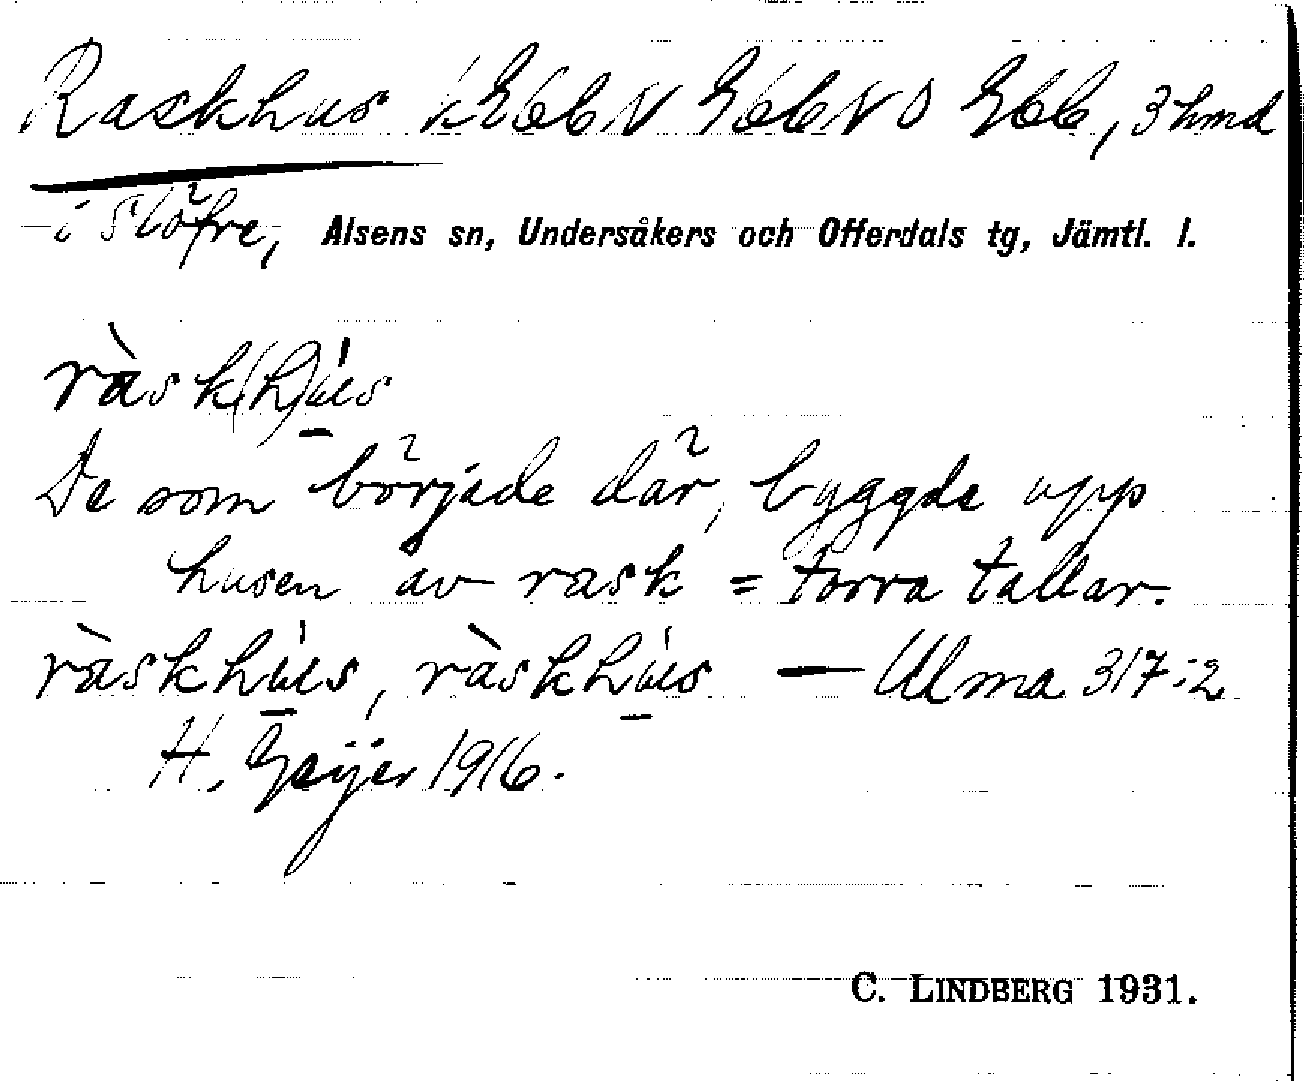 Raskhus k E6b N E6b N O E6b, 3 hmd
i Slöfre, Alsens sn, Undersåkers och Offerdals tg, Jämtl. l.
ràsk(h)ús
De som började där, byggde upp
husen av rask = torra tallar.
ràskhús, ràskhús — Ulma 317:2
H. Geijer 1916.
C. LINDBERG 1931.